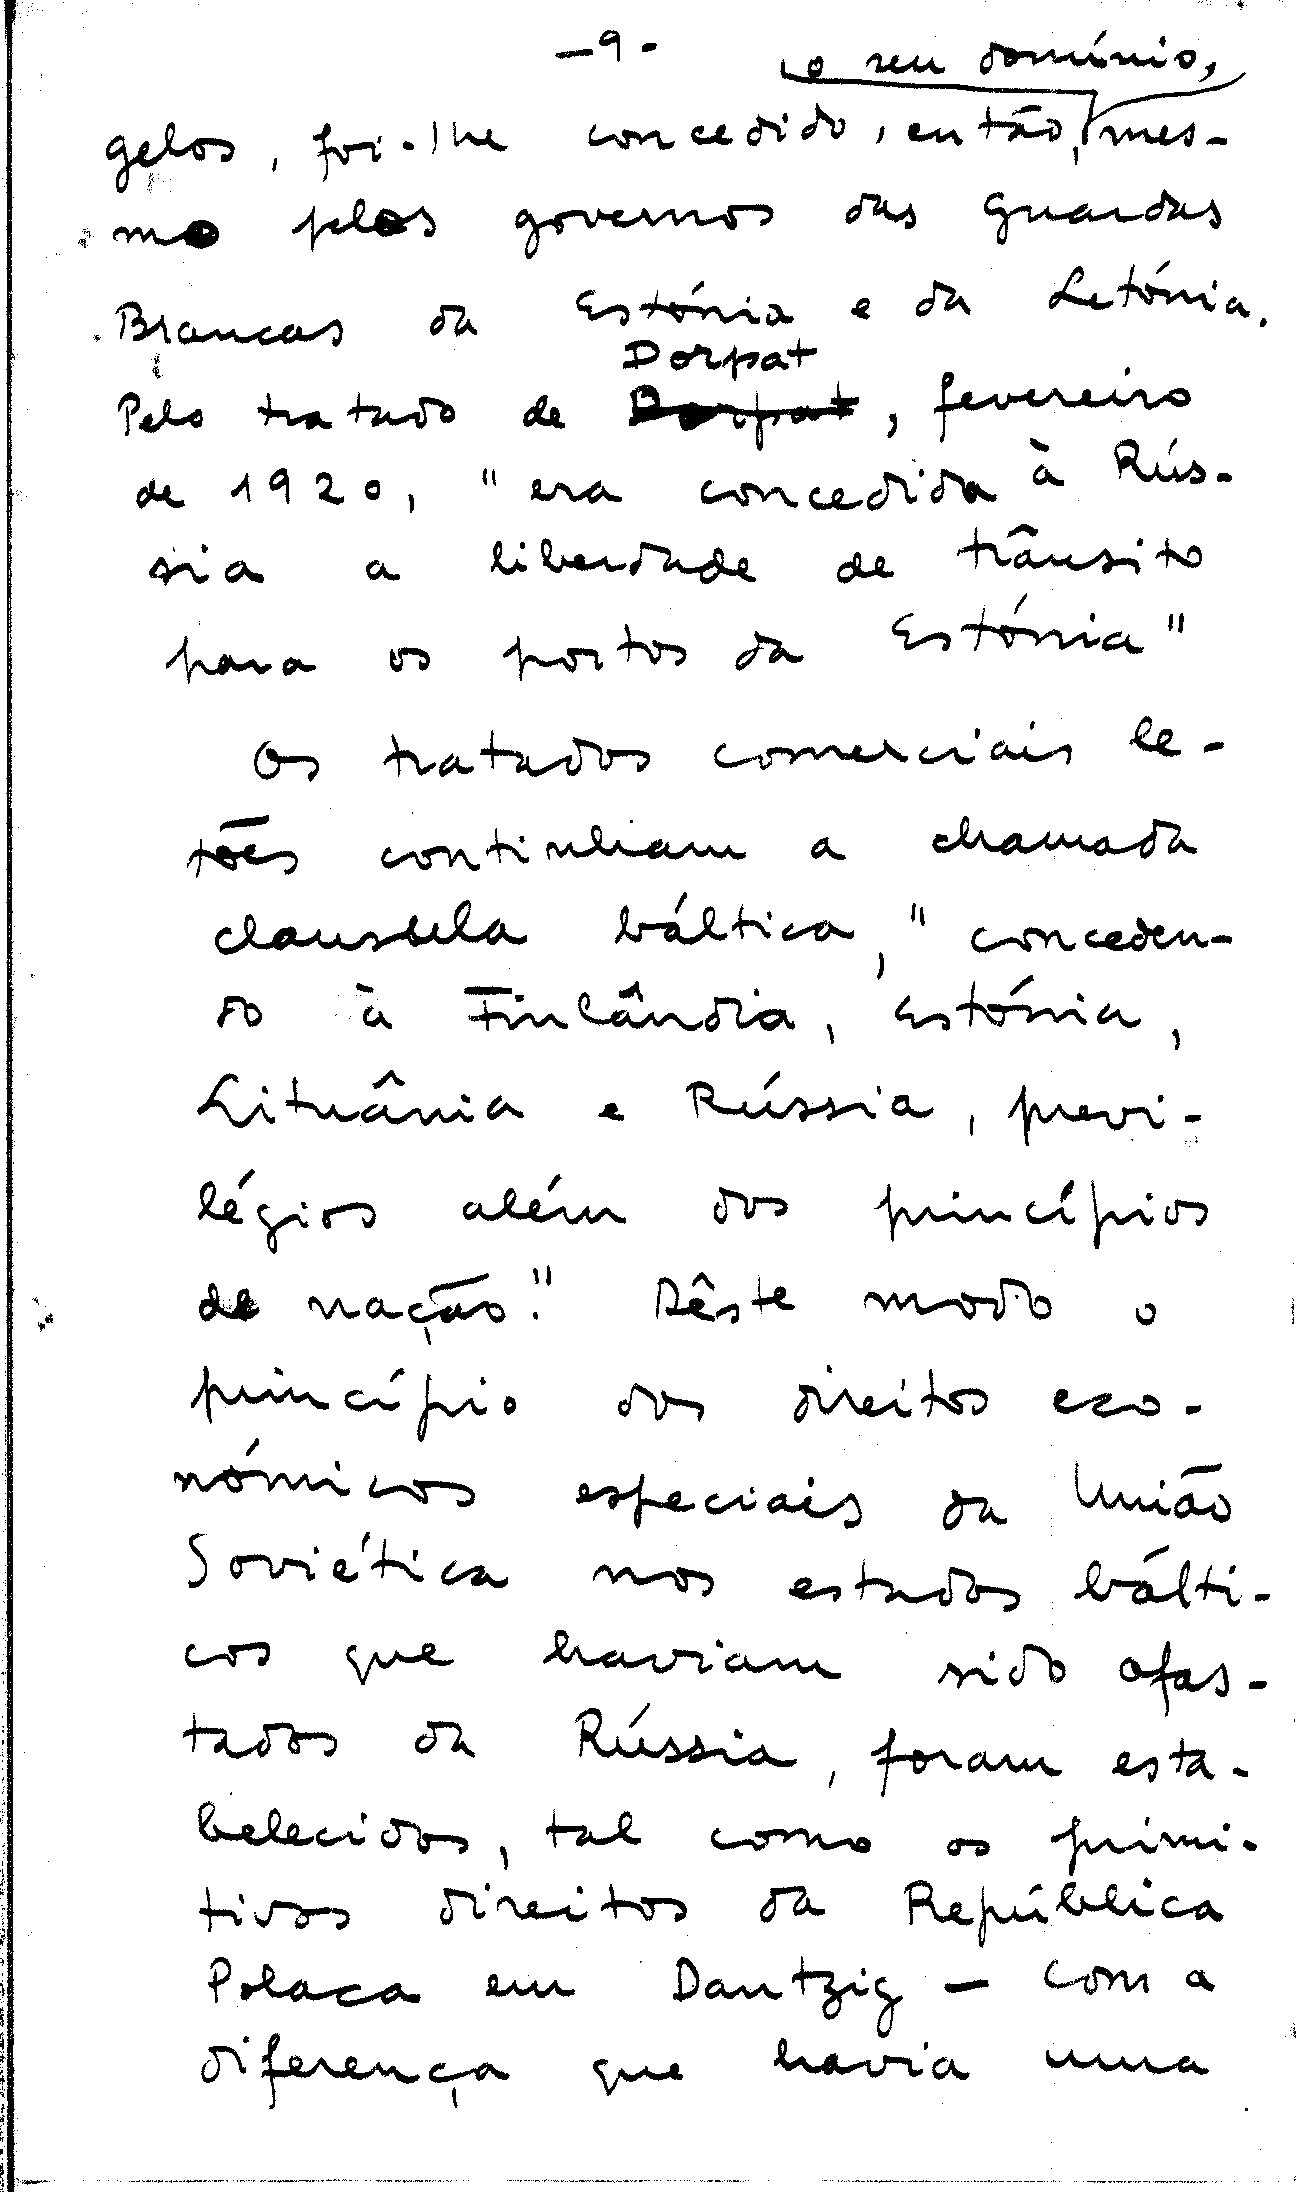 -9-
o seu domínio,
gelos, foi-lhe concedido, então, mes-
mo pelos governos das Guardas
Brancas da Estónia e da Letónia.
Dorpat
Pelo tratado de Dorpat, fevereiro
de 1920, "era concedida à Rús-
sia a liberdade de trânsito
para os portos da Estónia"
Os tratados comerciais le-
tões continham a chamada
clausula báltica, "conceden-
do à Finlândia, Estónia,
Lituânia e Rússia, previ-
légios além dos princípios
de nação." Dêste modo o
princípio dos direitos eco-
nómicos especiais da União
Soviética nos estados bálti-
cos que haviam sido afas-
tados da Rússia, foram esta-
belecidos, tal como os primi-
tivos direitos da República
Polaca em Dantzig - com a
diferença que havia uma